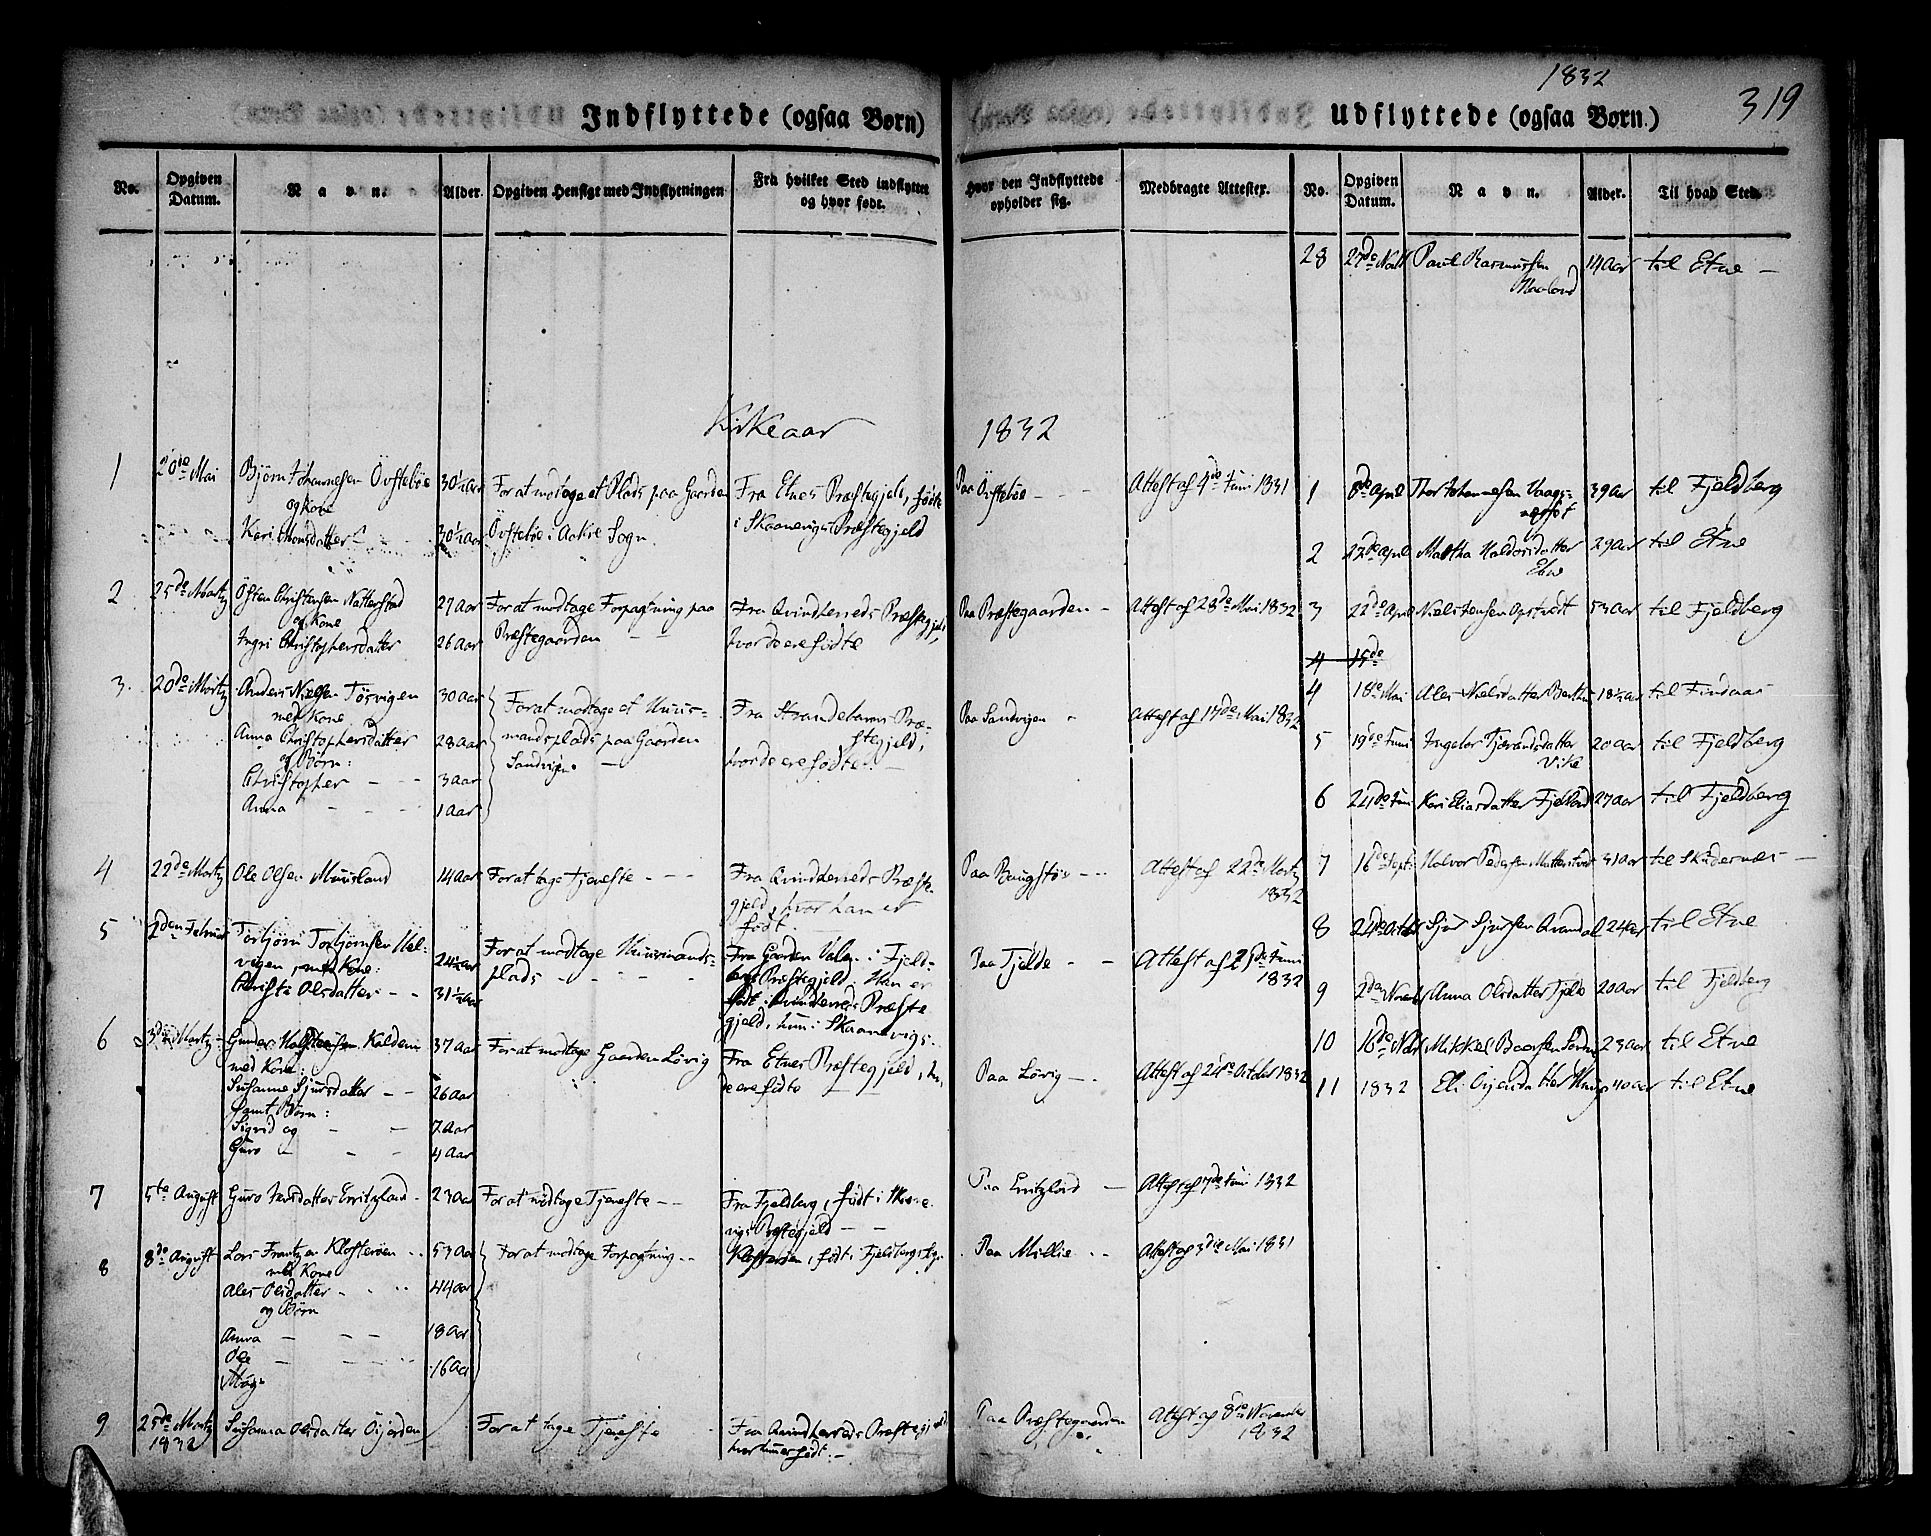 1832
319
Indflyttede (ogsaa Børn)
No.
Opgiven Datum.
Navn.
Alder.
Opgiven Hensigt med Indflytningen
Fra hvilket Sted indflyttet og hvor født.
Hvor den Indflyttede opholder sig.
Medbragte Attester.
Kirkeaar 1832
1 20de Mai Bjørn Johannesen Övsteböe 30½ Aar For at modtage et Plads paa Gaarden Fra Etnes Præstegjeld, födte Paa Övstebøe Attest af 4de Juni 1831
og Kone
Kari 30½ Aar Övstebøe i Aakre Sogn i Skaanevigs Præstegjeld
2 25de Martz Östen Christensen Natterstad 27 Aar For at modtage Forpagtning paa Fra Qvindherreds Præstegjeld, Paa Præstegaarden Attest af 28de Mai 1832
og Kone
Ingri Christophersdatter 26 Aar Præstegaarden hvor de ere födte
3. 20de Martz Anders Nielsen Tösvigen 30 Aar For at modtage et Huus- Fra Strandebarms Præ- Paa Sandvigen Attest af 17de Mai 1832
med Kone
Anna Christophersdatter 28 Aar mandsplads paa Gaarden stegjeld,
og Børn:
Christopher 3 Aar Sandvigen hvor de ere födte
Anna 1 Aar
4 22de Martz Ole Olsen Muusland 14 Aar For at tage Tjeneste Fra Qvindherreds Præste- Paa Attest af 22de Martz
gjeld, hvor han er 1832
født.
5 2den Februar Torbjörn Torbjörnsen Hel- 24½ Aar For at modtage Huusmands- Fra Gaarden Valen i Fjeld- Paa Tjelde Attest af 2den Juni
vigen, med Kone: plads bergs Præstegjeld. Han er 1832
Christi Olsdatter 31½ Aar født i Qvindherreds Præste
gjeld, hun i Skaanevigs
6 3die Martz Gunder Kaldem 37 Aar For at modtage Gaarden Løvig Fra Etnes Præstegjeld, hvor Paa Løvig Attest af 24de October 1832
med Kone:
Susanne Sjursdatter 26 Aar de ere fødte
samt Børn:
Sigrid og 7 Aar
Guro 4 Aar
7 5te August Guro Enitzland 23 Aar For at modtage Tjeneste Fra Fjeldberg, født i Skaane- Paa Enitzland Attest af 7de Juni 1832
vigs Præstegjeld
8 8de August Lars Frantzen Klosterøen 53 Aar For at modtage Forpagtning Klosterøen, født i Fjeldbergs Paa Millie Attest af 3die Mai 1831
med Kone
Ales Olsdatter 44 Aar
og Børn
Anna 18 Aar
Ole 16 Aar
9 25de Martz Susanna Olsdatter For at tage Tjeneste Fra Qvindherreds Præstegjeld Paa Præstegaarden Attest af 8de November
1832 hvor hun er født. 1832
Udflyttede (ogsaa Børn.)
No.
Opgiven Datum.
Navn.
Alder.
Til hvad Sted.
28 27de Paul Rasmussen 14 Aar til Etne
1 8de April Thor Johannesen 39 Aar til Fjeldberg
2 22de April Martha Haldorsdatter 29 Aar til Etne
Etne
3 22de April Niels Jensen Opstvedt 53 Aar til Fjeldberg
4 15de
4 18de Mai Ales Nielsdatter 18½ Aar til Findaas
5 19de Juni Ingebor Tjerandsdatter 20 Aar til Fjeldberg
Vike
6 24de Juni Kari Eliasdatter 27 Aar til Fjeldberg
7 16de Sept. Halvor Pedersen 31 Aar til Skudesnæs
8 24de October Sjur Sjursen Qvandal 24 Aar til Etne
9 2den November Anna Olsdatter Tjelde 20 Aar til Fjeldberg
10 16de Mikkel 23 Aar til Etne
11 1832 Eli 40 Aar til Etne